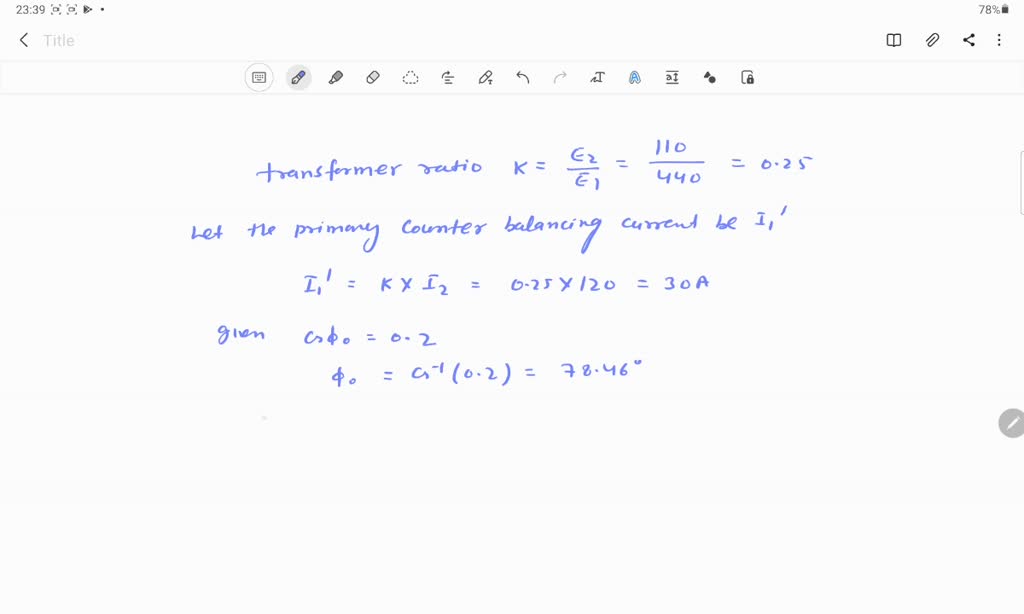 23:39
78%
Title
transformer ratio K = E2/E1 = 110/440 = 0.25
Let the primary counter balancing current be I1'
I1' = K X I2 = 0.25 X 120 = 30A
given cosϕ0 = 0.2
ϕ0 = cos⁻¹(0.2) = 78.46°